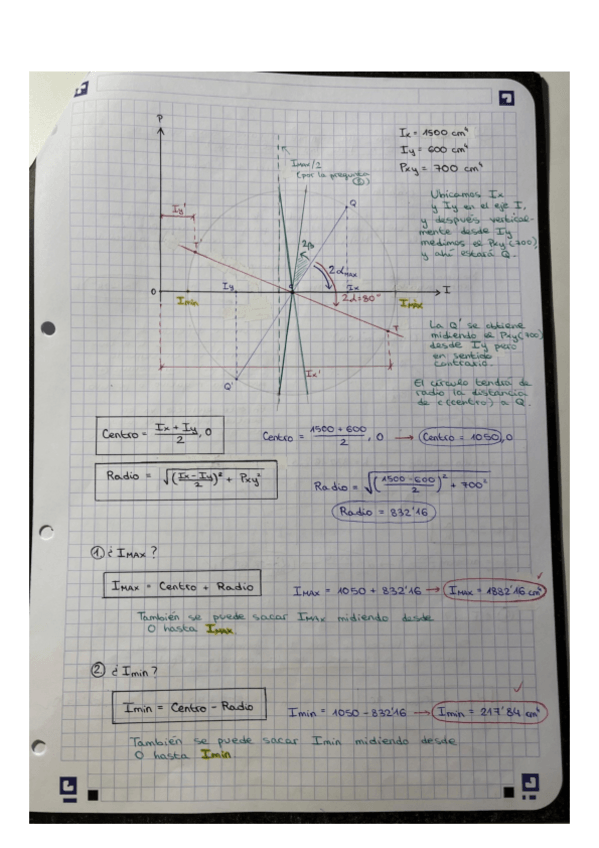 P
Ix = 1500 cm⁴
Iy = 600 cm⁴
Pxy = 700 cm⁴
IMAX/2
(por la pregunta
⑤)
Ubicamos Ix
y Iy en el eje I,
y después vertical-
mente desde Iy
medimos el Pxy (700)
y ahí estará Q.
Iy'
Q
T'
2β
2αmax
O
Imin
Iy
c
Ix
2α=80°
Imáx
I
T
Ix'
Q'
La Q' se obtiene
midiendo el Pxy (700)
desde Iy pero
en sentido
contrario.
El círculo tendrá de
radio la distancia
de c (centro) a Q.
Centro = Ix + Iy / 2, 0
Centro = 1500 + 600 / 2, 0 → Centro = 1050, 0
Radio = √((Ix - Iy / 2)² + Pxy²
Radio = √((1500 - 600 / 2)² + 700²
Radio = 832'16
① ¿ IMAX ?
IMAX = Centro + Radio
IMAX = 1050 + 832'16 → IMAX = 1882'16 cm⁴
También se puede sacar IMAX midiendo desde
O hasta IMAX
② ¿ Imin ?
Imin = Centro - Radio
Imin = 1050 - 832'16 → Imin = 217'84 cm⁴
También se puede sacar Imin midiendo desde
O hasta Imin.